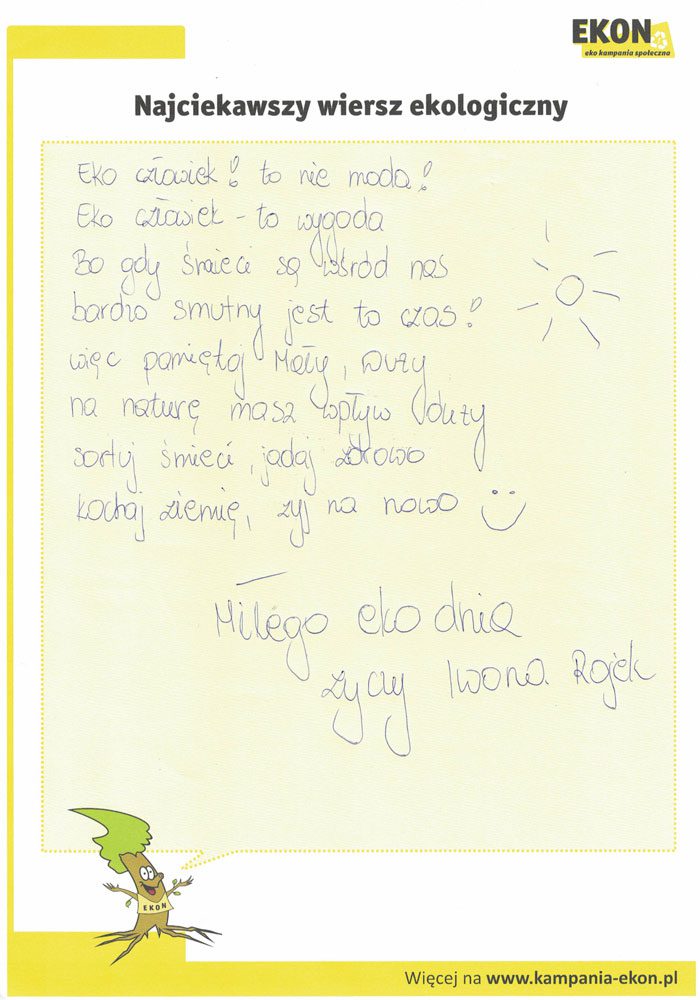 EKON
eko kampania społeczna
Najciekawszy wiersz ekologiczny
Eko człowiek! to nie moda!
Eko człowiek - to wygoda
Bo gdy śmieci są wśród nas
bardzo smutny jest to czas!
więc pamiętaj Mały, Duży
na naturę masz wpływ duży
sortuj śmieci, jadaj zdrowo
kochaj ziemię, żyj na nowo
Miłego eko dnia
życzy Iwona Rojek
EKON
Więcej na www.kampania-ekon.pl